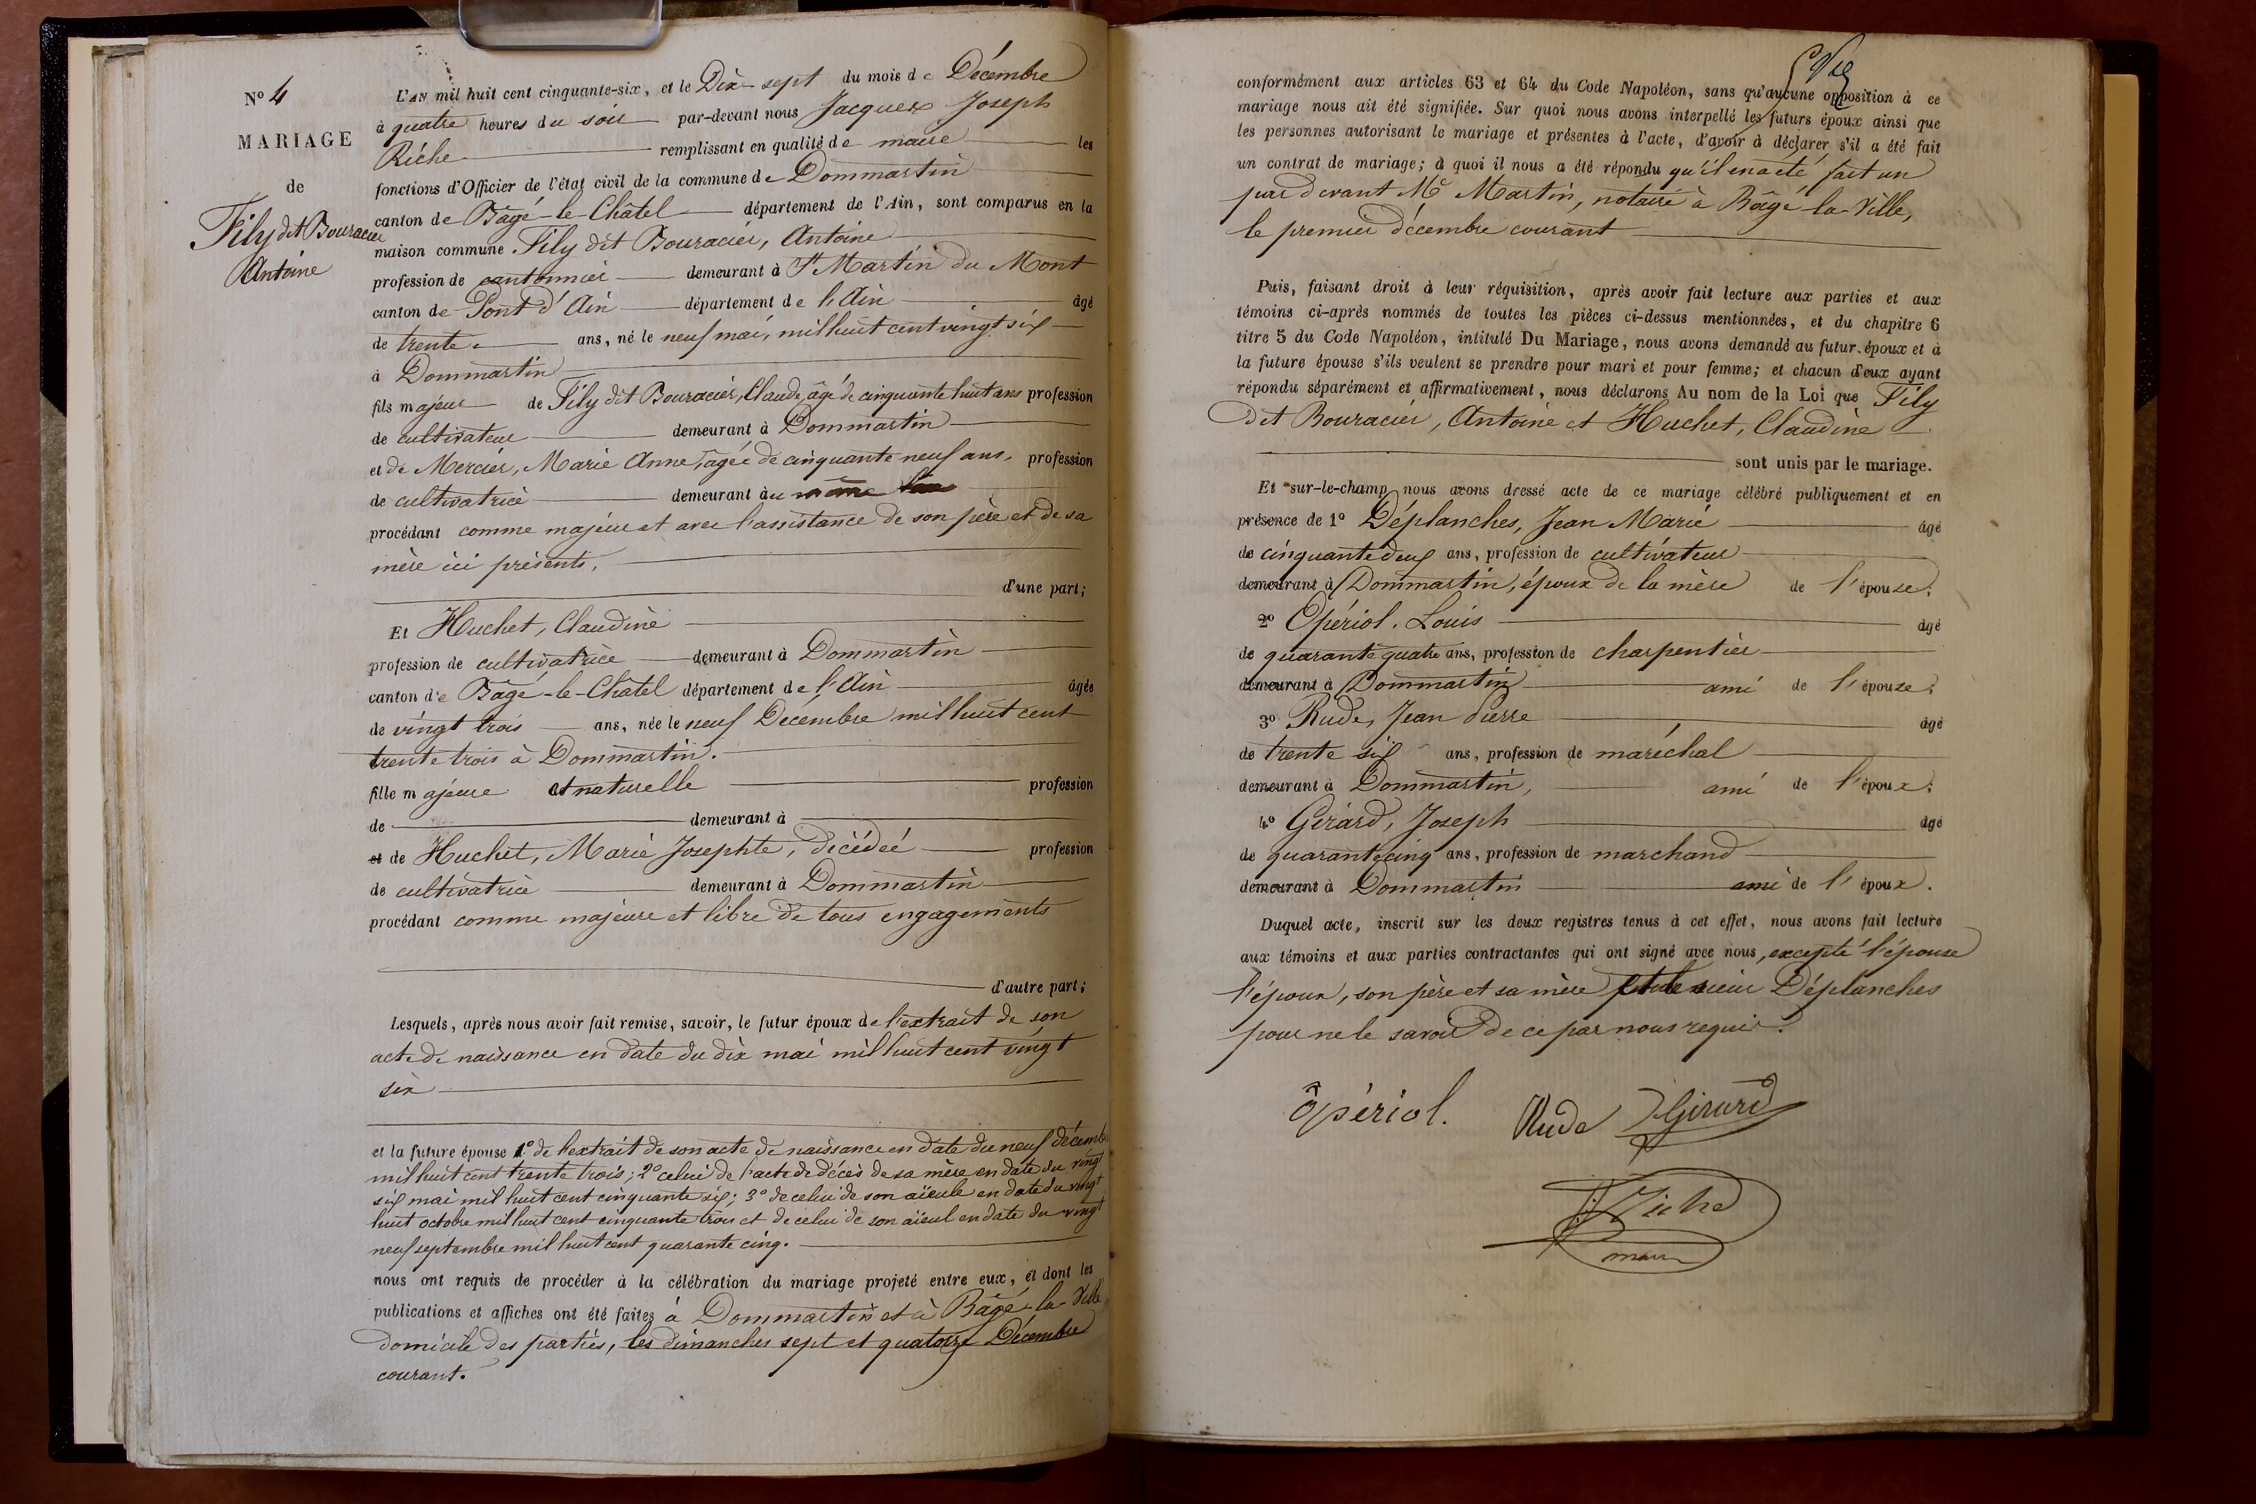 N° 4
MARIAGE
de
Fily dit Bouracier
Antoine
L'AN mil huit cent cinquante-six, et le Dix-sept du mois de Décembre
à quatre heures du soir par-devant nous Jacques Joseph
Riche remplissant en qualité de maire les
fonctions d'Officier de l'état civil de la commune de Dommartin
canton de Bâgé-le-Châtel département de l'Ain, sont comparus en la
maison commune Fily dit Bouracier, Antoine
profession de cantonnier demeurant à St Martin du Mont
canton de Pont d'Ain département de l'Ain âgé
de trente ans, né le neuf mai, mil huit cent vingt six
à Dommartin
fils majeur de Fily dit Bouracier, Claude, âgé de cinquante huit ans profession
de cultivateur demeurant à Dommartin
et de Mercier, Marie Anne, âgée de cinquante neuf ans, profession
de cultivatrice demeurant au même lieu
procédant comme majeur et avec l'assistance de son père et de sa
mère ici présents,
d'une part;
Et Huchet, Claudine
profession de cultivatrice demeurant à Dommartin
canton de Bâgé-le-Châtel département de l'Ain âgée
de vingt trois ans, née le neuf Décembre mil huit cent
trente trois à Dommartin.
fille majeure et naturelle profession
de demeurant à
et de Huchet, Marie Josephte, décédée profession
de cultivatrice demeurant à Dommartin
procédant comme majeure et libre de tous engagements
d'autre part;
Lesquels, après nous avoir fait remise, savoir, le futur époux de l'extrait de son
acte de naissance en date du dix mai mil huit cent vingt
six
et la future épouse 1° de l'extrait de son acte de naissance en date du neuf décemb
mil huit cent trente trois; 2° celui de l'acte de décès de sa mère en date du vingt
six mai mil huit cent cinquante six; 3° de celui de son aïeule en date du vingt
huit octobre mil huit cent cinquante trois et de celui de son aïeul en date du vingt
neuf septembre mil huit cent quarante cinq.
nous ont requis de procéder à la célébration du mariage projeté entre eux, et dont les
publications et affiches ont été faites à Dommartin et à Bâgé-la-Ville
domicile des parties, les dimanches sept et quatorze Décembre
courant.
conformément aux articles 63 et 64 du Code Napoléon, sans qu'aucune opposition à ce
mariage nous ait été signifiée. Sur quoi nous avons interpellé les futurs époux ainsi que
les personnes autorisant le mariage et présentes à l'acte, d'avoir à déclarer s'il a été fait
un contrat de mariage; à quoi il nous a été répondu qu'il en a été fait un
par devant Me Martin, notaire à Bâgé-la-Ville,
le premier décembre courant
Puis, faisant droit à leur réquisition, après avoir fait lecture aux parties et aux
témoins ci-après nommés de toutes les pièces ci-dessus mentionnées, et du chapitre 6
titre 5 du Code Napoléon, intitulé Du Mariage, nous avons demandé au futur époux et à
la future épouse s'ils veulent se prendre pour mari et pour femme; et chacun d'eux ayant
répondu séparément et affirmativement, nous déclarons Au nom de la Loi que Fily
dit Bouracier, Antoine et Huchet, Claudine
sont unis par le mariage.
Et sur-le-champ nous avons dressé acte de ce mariage célébré publiquement et en
présence de 1° Déplanches, Jean Marie âgé
de cinquante deux ans, profession de cultivateur
demeurant à Dommartin, époux de la mère de l'épouse;
2° Opériol, Louis âgé
de quarante quatre ans, profession de charpentier
demeurant à Dommartin ami de l'épouse;
3° Rude, Jean Pierre âgé
de trente six ans, profession de maréchal
demeurant à Dommartin, ami de l'époux;
4° Girard, Joseph âgé
de quarante cinq ans, profession de marchand
demeurant à Dommartin ami de l'époux.
Duquel acte, inscrit sur les deux registres tenus à cet effet, nous avons fait lecture
aux témoins et aux parties contractantes qui ont signé avec nous, excepté l'épouse
l'époux, son père et sa mère et le sieur Déplanches
pour ne le savoir de ce par nous requis.
Opériol. Rude Girard
Riche
maire